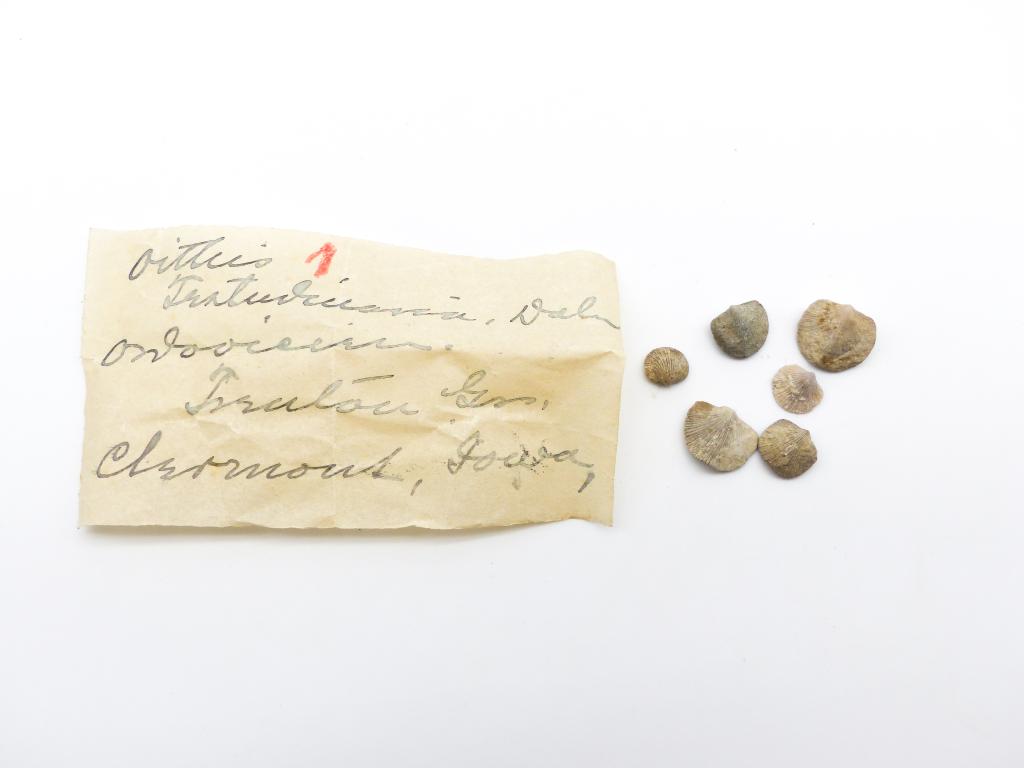 Orthis 1
Testudinaria, Dalm
Ordovician.
Trenton Gro.
Clermont, Iowa,